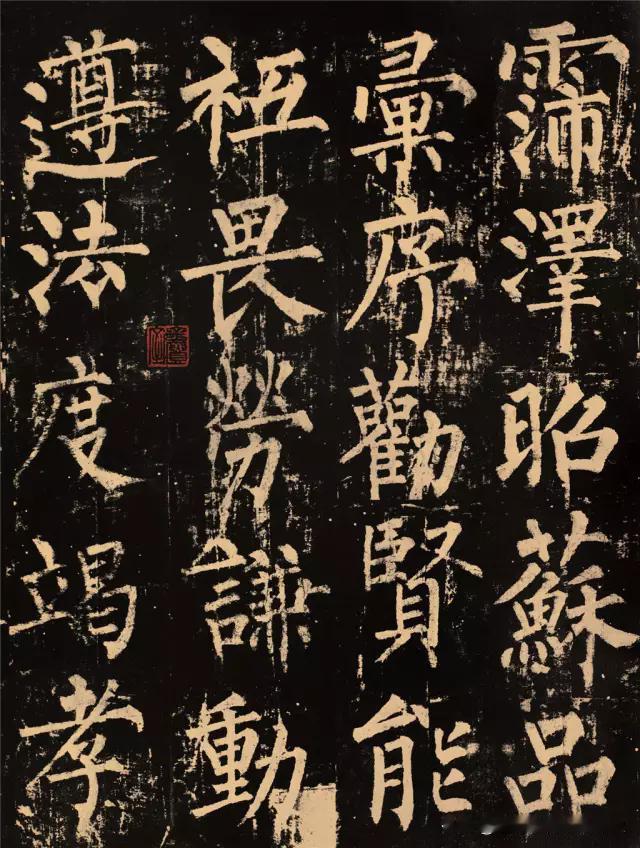 霈澤昭蘇品
彙序勸賢能
祗畏勞謙動
遵法度竭孝